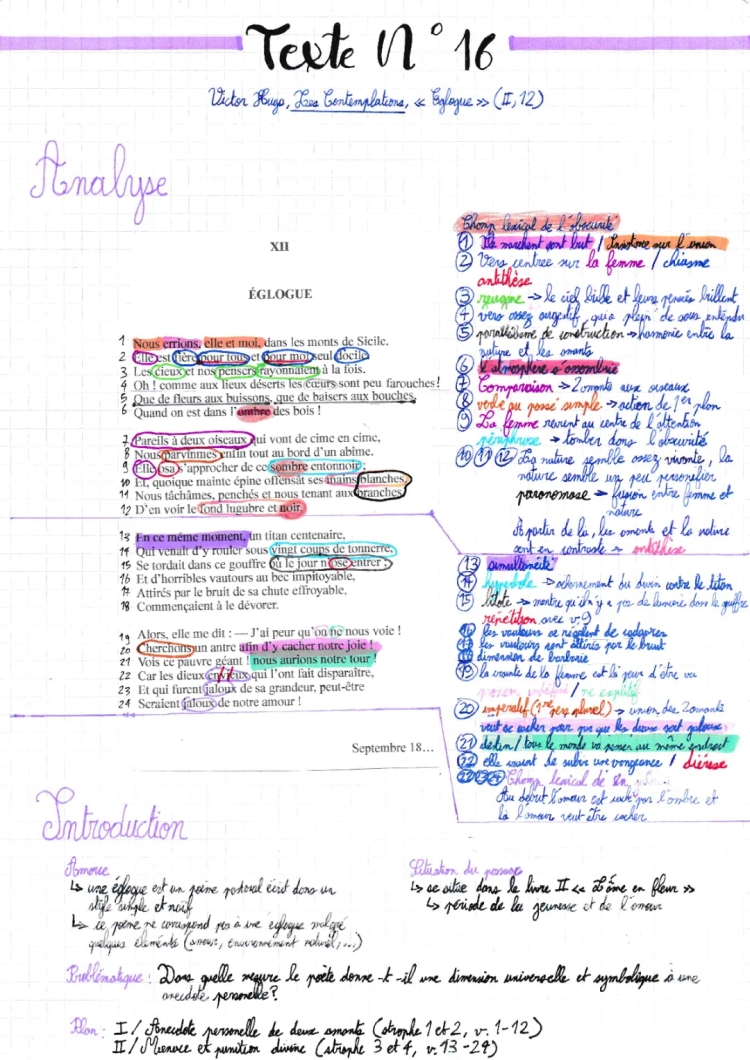 Texte N° 16
Victor Hugo, Les Contemplations, « Eglogue » (II, 12)
Analyse
XII
ÉGLOGUE
1 Nous errions, elle et moi, dans les monts de Sicile.
2 Elle est fière pour tous et pour moi seul docile.
3 Les cieux et nos pensers rayonnaient à la fois.
4 Oh ! comme aux lieux déserts les cœurs sont peu farouches !
5 Que de fleurs aux buissons, que de baisers aux bouches,
6 Quand on est dans l'ombre des bois !
7 Pareils à deux oiseaux qui vont de cime en cime,
8 Nous parvînmes enfin tout au bord d'un abîme.
9 Elle osa s'approcher de ce sombre entonnoir ;
10 Et, quoique mainte épine offensât ses mains blanches,
11 Nous tâchâmes, penchés et nous tenant aux branches,
12 D'en voir le fond lugubre et noir.
13 En ce même moment, un titan centenaire,
14 Qui venait d'y rouler sous vingt coups de tonnerre,
15 Se tordait dans ce gouffre où le jour n'ose entrer ;
16 Et d'horribles vautours au bec impitoyable,
17 Attirés par le bruit de sa chute effroyable,
18 Commençaient à le dévorer.
19 Alors, elle me dit : — J'ai peur qu'on ne nous voie !
20 Cherchons un antre afin d'y cacher notre joie !
21 Vois ce pauvre géant ! nous aurions notre tour !
22 Car les dieux envieux qui l'ont fait disparaître,
23 Et qui furent jaloux de sa grandeur, peut-être
24 Seraient jaloux de notre amour !
Septembre 18...
Champ lexical de l'obscurité
1 Ils marchent sont but / Insistance sur l'union
2 Vers centrée sur la femme / chiasme
antithèse
3 zeugme → le ciel brille et leurs pensées brillent
4 vers assez
5 parallélisme de construction → harmonie entre la
nature et les amants
6 L'atmosphère s'assombrie
7 Comparaison → 2 amants aux oiseaux
8 verbe au passé simple → action de 1er plan
9 La femme revient au centre de l'attention
périphrase → tomber dans l'obscurité
10 11 12 La nature semble assez vivante, la
nature semble un peu personnifier
paronomase → fusion entre femme et
nature
A partir de la, les amants et la nature
sont en contraste → antithèse
13 simultanéité
14 hyperbole → acharnement du divin contre le titan
15 litote → montre qu'il n'y a pas de lumière dans le gouffre
répétition avec v.9
16 les vautours se régalent de cadavres
17 les vautours sont attirés par le bruit
18 dimension de barbarie
19 la crainte de la femme est la peur d'être vu
pronom indéfini / ne explétif
20 impératif (1re pers pluriel) → union des 2 amants
veut se cacher pour pas que les dieux sont jaloux
21 destin / tous le monde va passer au même endroit
22 elle vient de subir une vengeance / diérèse
22 23 24 Champ lexical de
Au début l'amour est caché par l'ombre et
là l'amour veut être cacher
Introduction
Amorce
↳ une églogue est un poème pastoral écrit dans un
style simple et naïf
↳ ce poème ne correspond pas à une églogue malgré
quelques éléments (amour, environnement naturel, ...)
Situation du passage
↳ se situe dans le livre II « L'âme en fleur »
↳ période de la jeunesse et de l'amour
Problématique : Dans quelle mesure le poète donne-t-il une dimension universelle et symbolique à une
anecdote personnelle ?
Plan : I / Anecdote personnelle de deux amants (strophe 1 et 2, v. 1-12)
II / Menace et punition divine (strophe 3 et 4, v. 13-24)